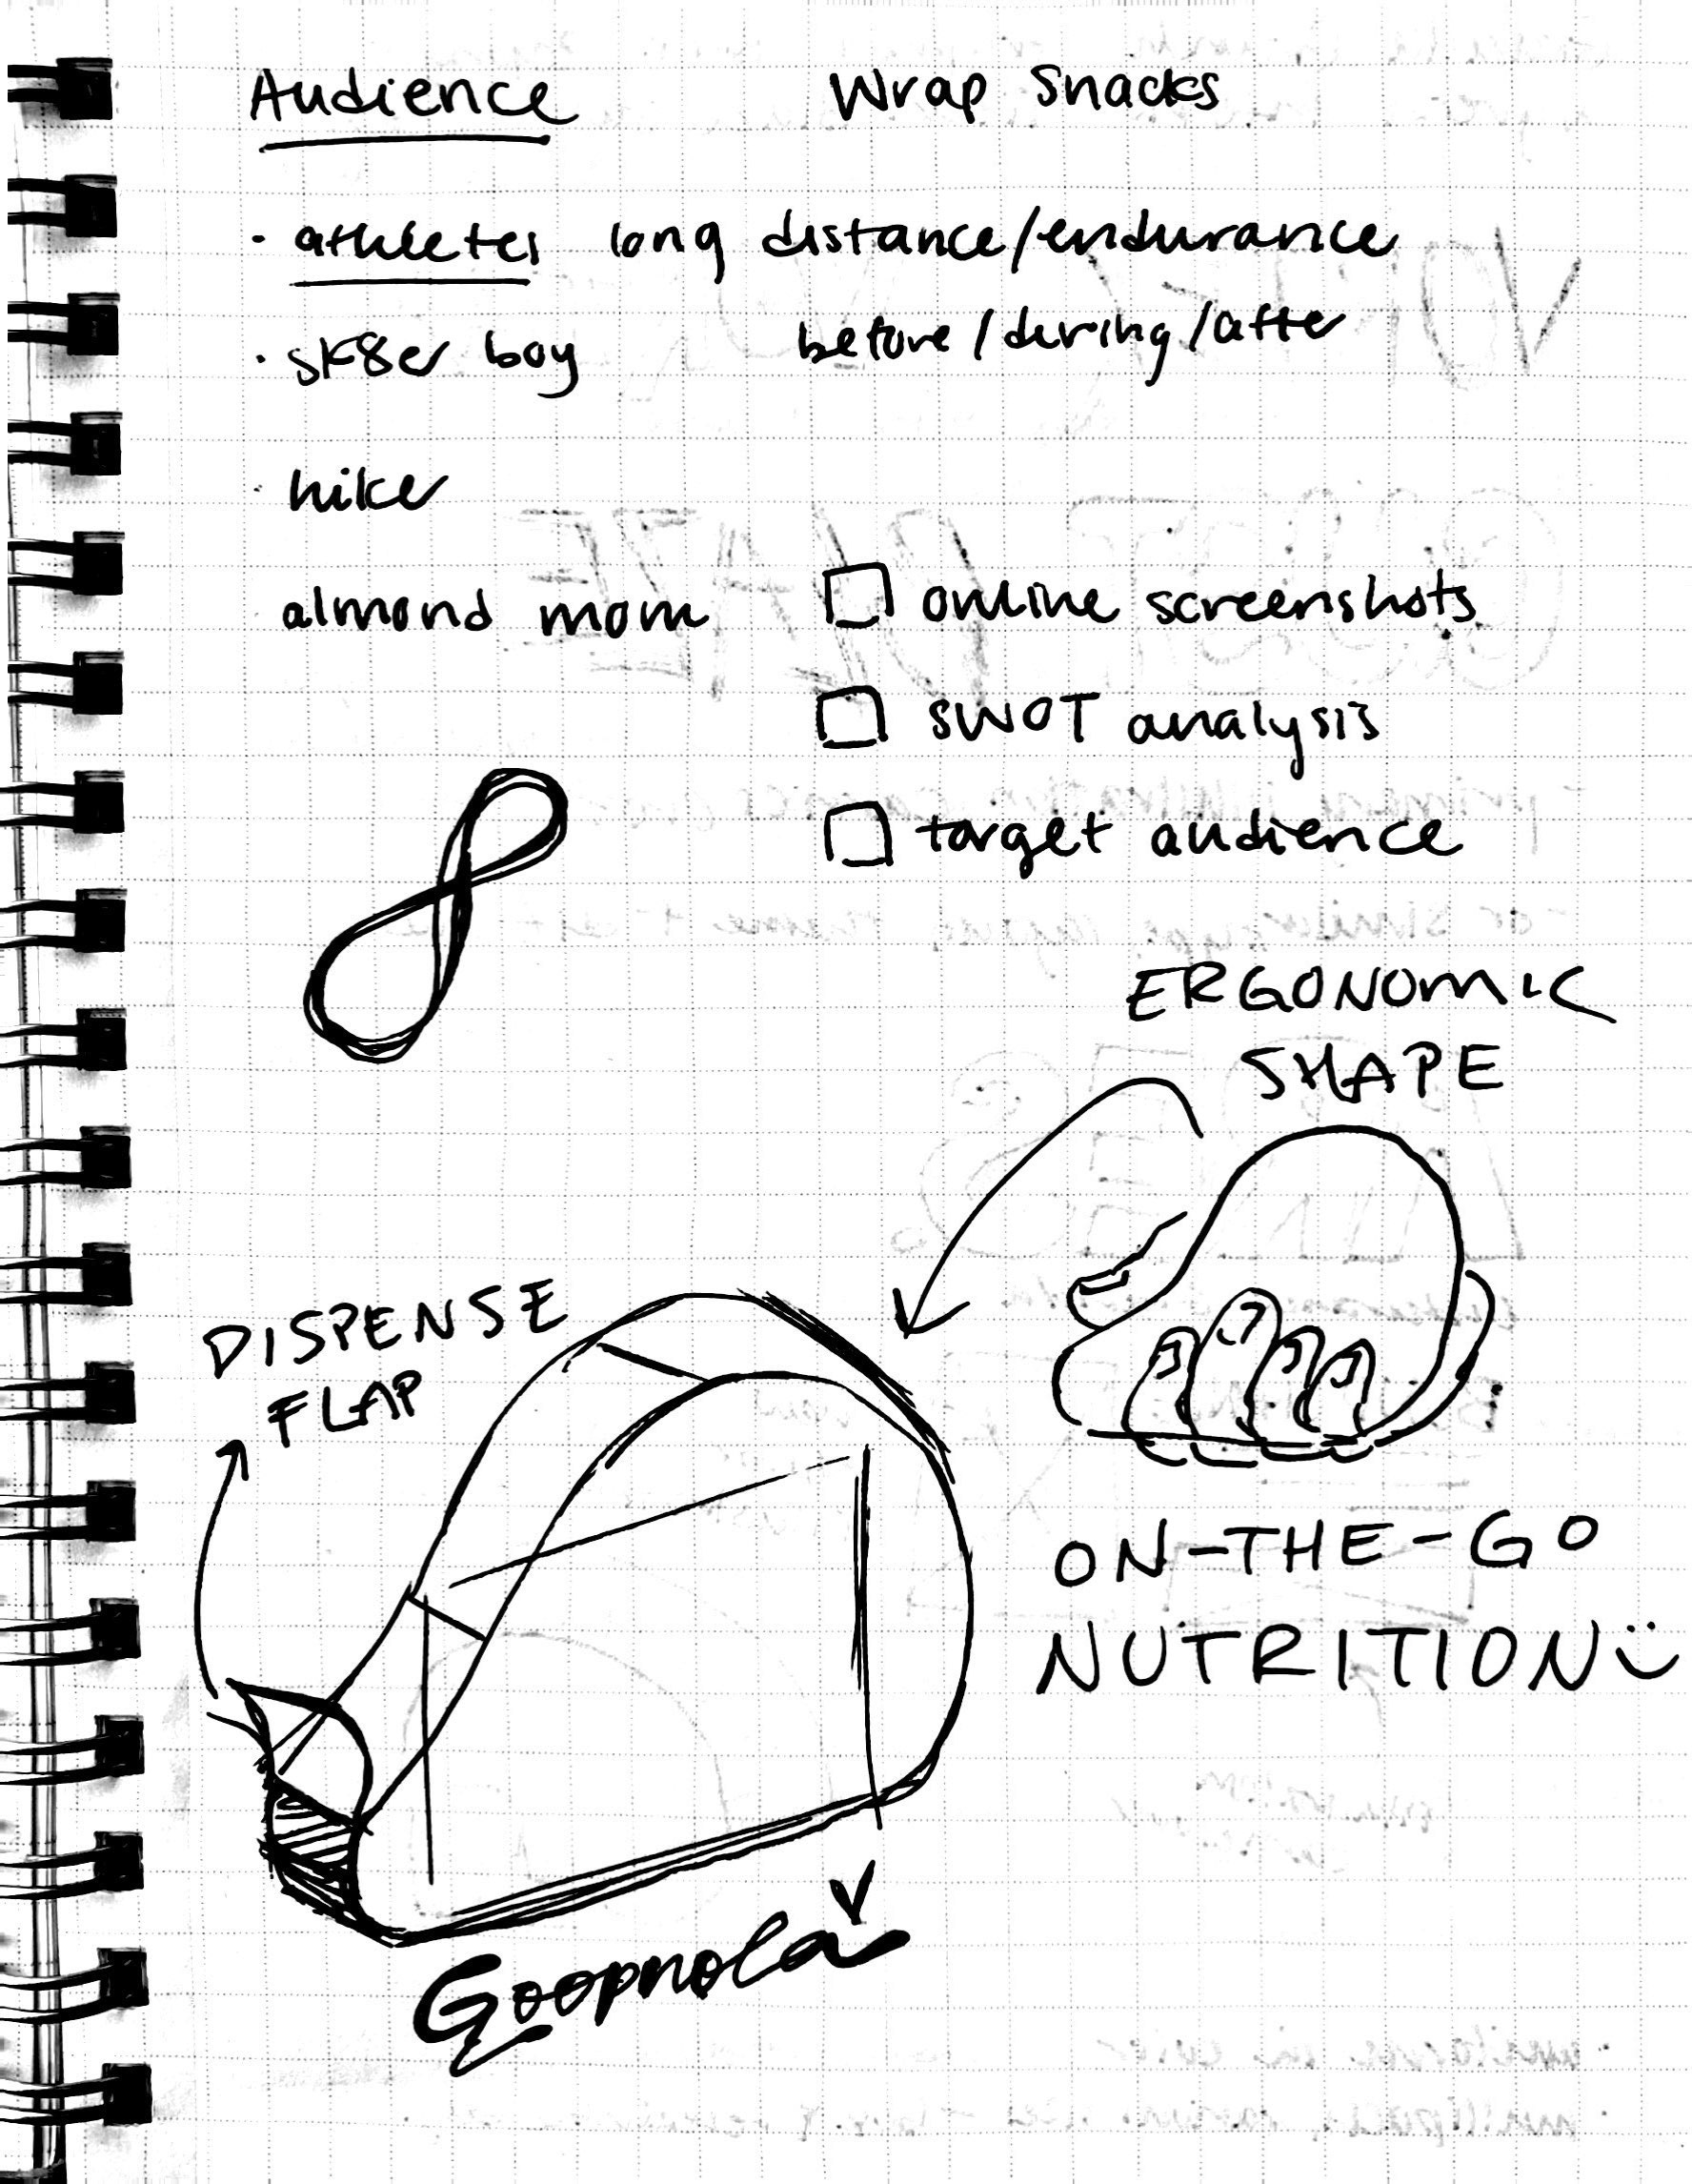 Audience
Wrap Snacks
· athletes long distance/endurance
before/during/after
· sk8er boy
· hiker
almond mom
☐ online screenshots
☐ SWOT analysis
☐ target audience
ERGONOMIC
SHAPE
DISPENSE
FLAP
ON-THE-GO
NUTRITION
Goopnola